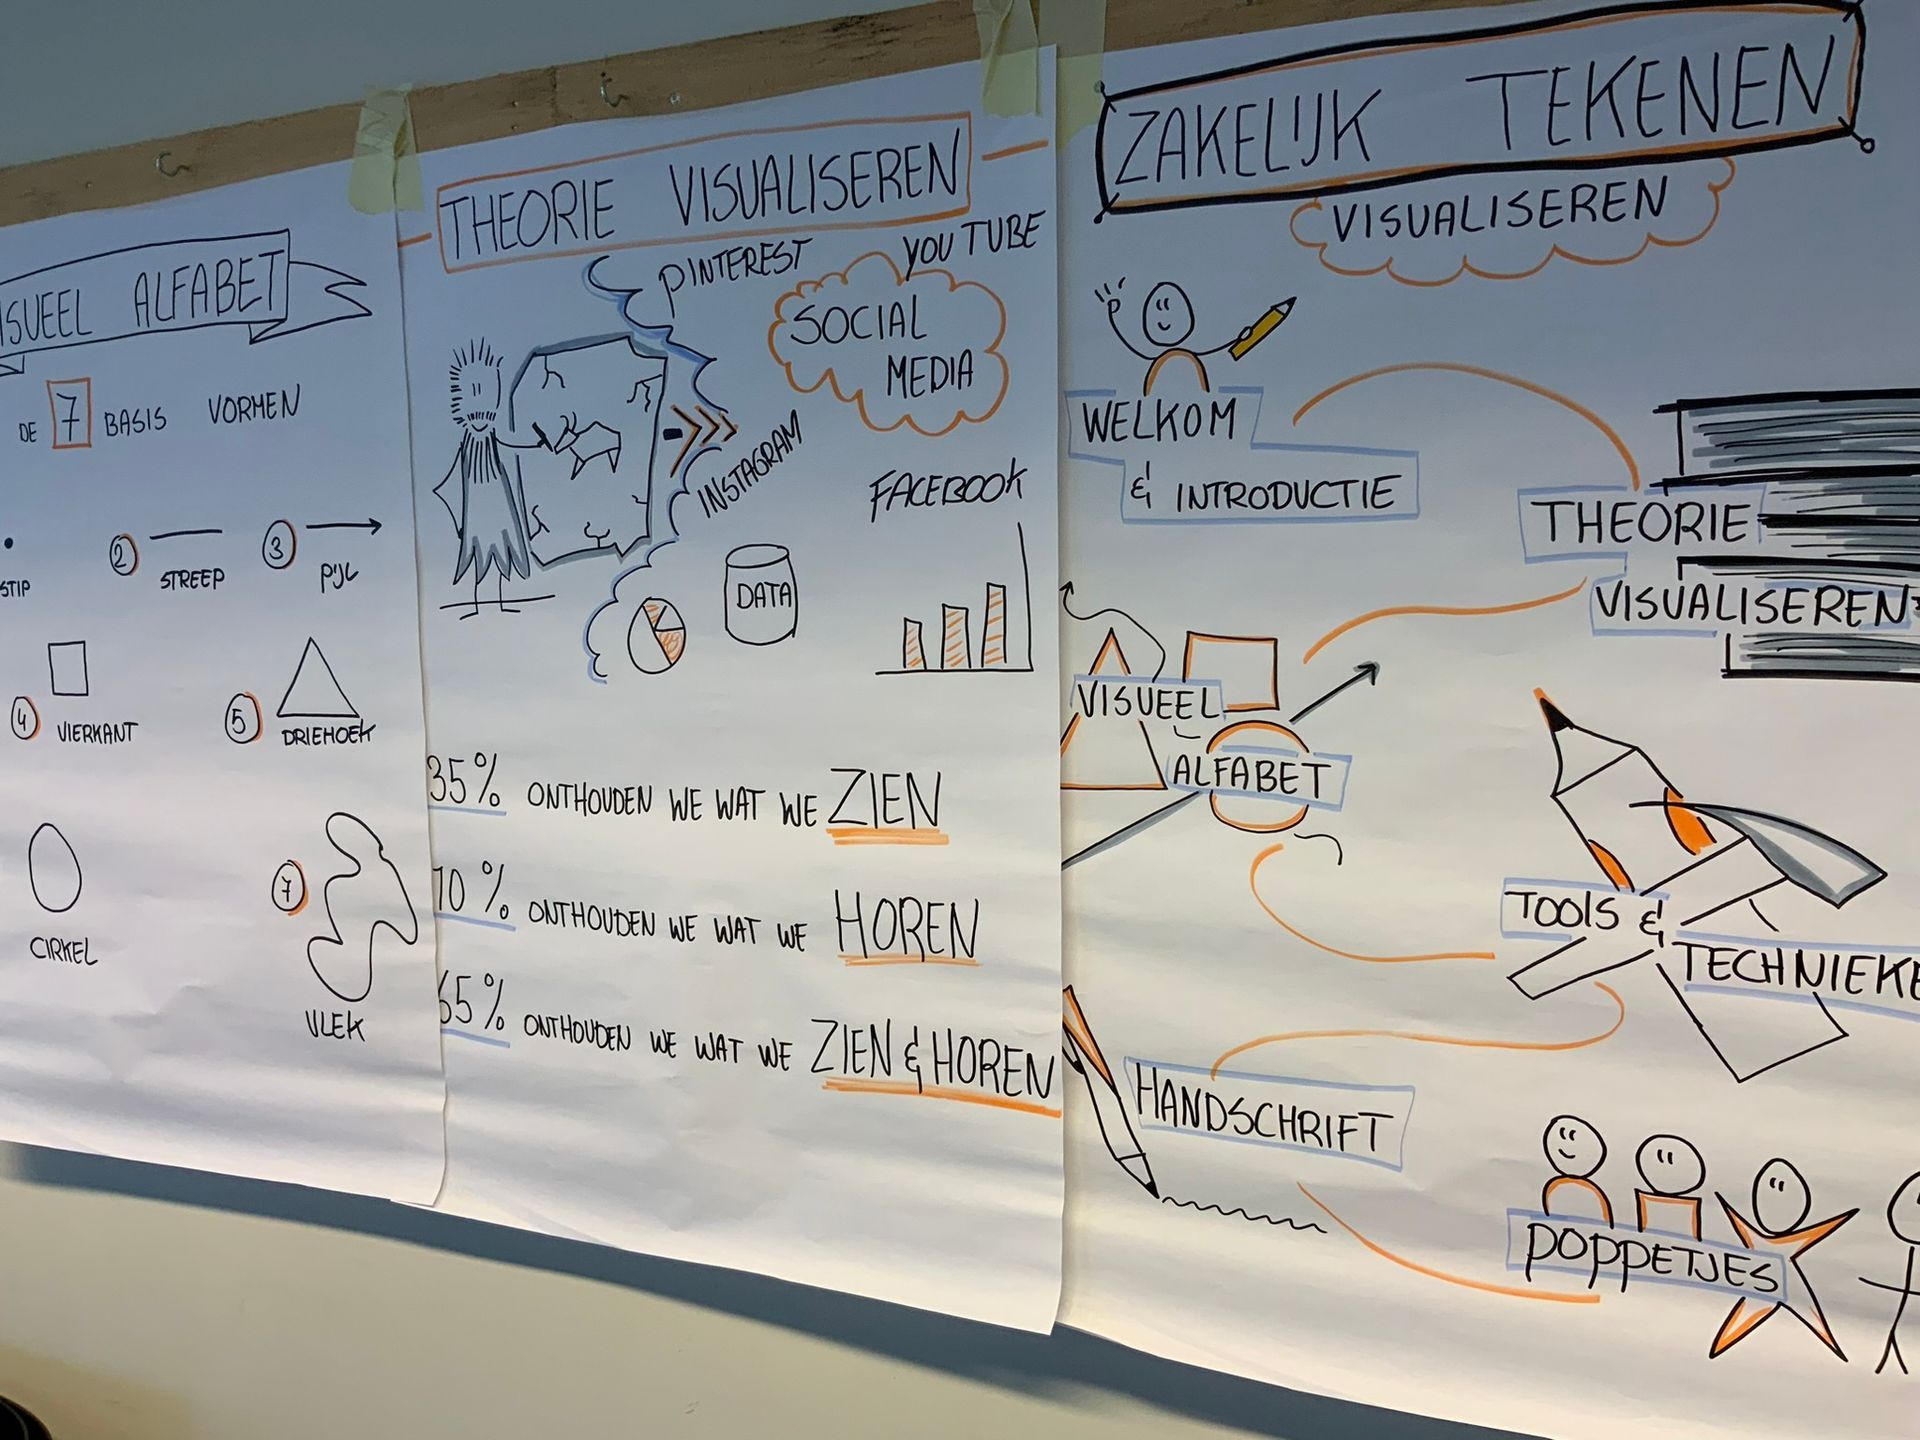 ISUEEL ALFABET
DE 7 BASIS VORMEN
STIP
2 STREEP
3 PIJL
4 VIERKANT
5 DRIEHOEK
CIRKEL
7
VLEK
THEORIE VISUALISEREN
PINTEREST
YOUTUBE
SOCIAL
MEDIA
INSTAGRAM
FACEBOOK
DATA
35% ONTHOUDEN WE WAT WE ZIEN
10% ONTHOUDEN WE WAT WE HOREN
65% ONTHOUDEN WE WAT WE ZIEN & HOREN
ZAKELIJK TEKENEN
VISUALISEREN
WELKOM
& INTRODUCTIE
THEORIE
VISUALISEREN
VISUEEL
ALFABET
TOOLS &
TECHNIEKE
HANDSCHRIFT
POPPETJES